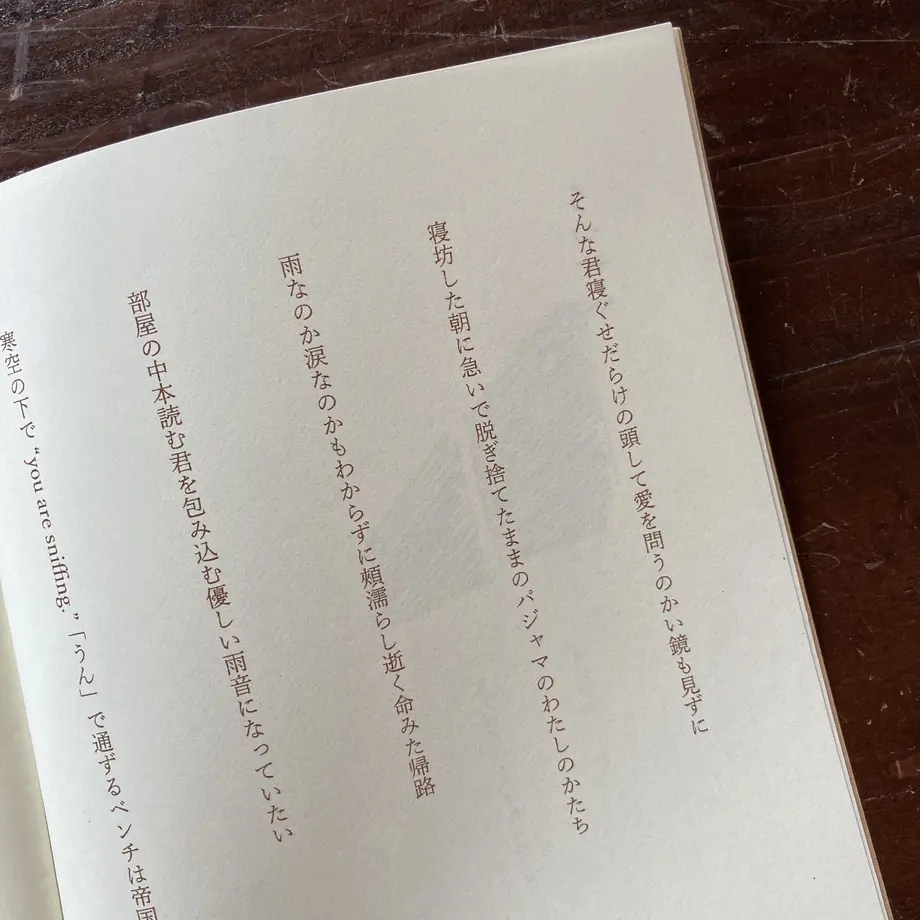 そんな君寝ぐせだらけの頭して愛を問うのかい鏡も見ずに
寝坊した朝に急いで脱ぎ捨てたままのパジャマのわたしのかたち
雨なのか涙なのかもわからずに頬濡らし逝く命みた帰路
部屋の中本読む君を包み込む優しい雨音になっていたい
寒空の下で“you are sniffing.”「うん」で通ずるベンチは帝国